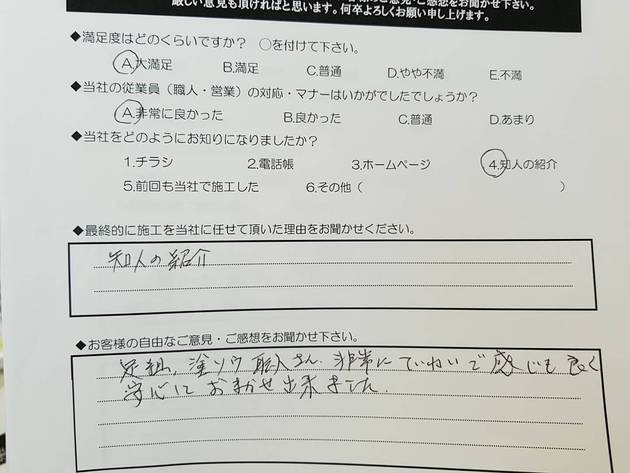 厳しい意見も頂ければと思います。何卒よろしくお願い申し上げます。
◆満足度はどのくらいですか？　○を付けて下さい。
A.大満足　B.満足　C.普通　D.やや不満　E.不満
◆当社の従業員（職人・営業）の対応・マナーはいかがでしたでしょうか？
A.非常に良かった　B.良かった　C.普通　D.あまり
◆当社をどのようにお知りになりましたか？
1.チラシ　2.電話帳　3.ホームページ　4.知人の紹介
5.前回も当社で施工した　6.その他（　）
◆最終的に施工を当社に任せて頂いた理由をお聞かせください。
知人の紹介
◆お客様の自由なご意見・ご感想をお聞かせ下さい。
足組、塗ソウ職人さん、非常にていねいで感じも良く
安心しておまかせ出来ました.